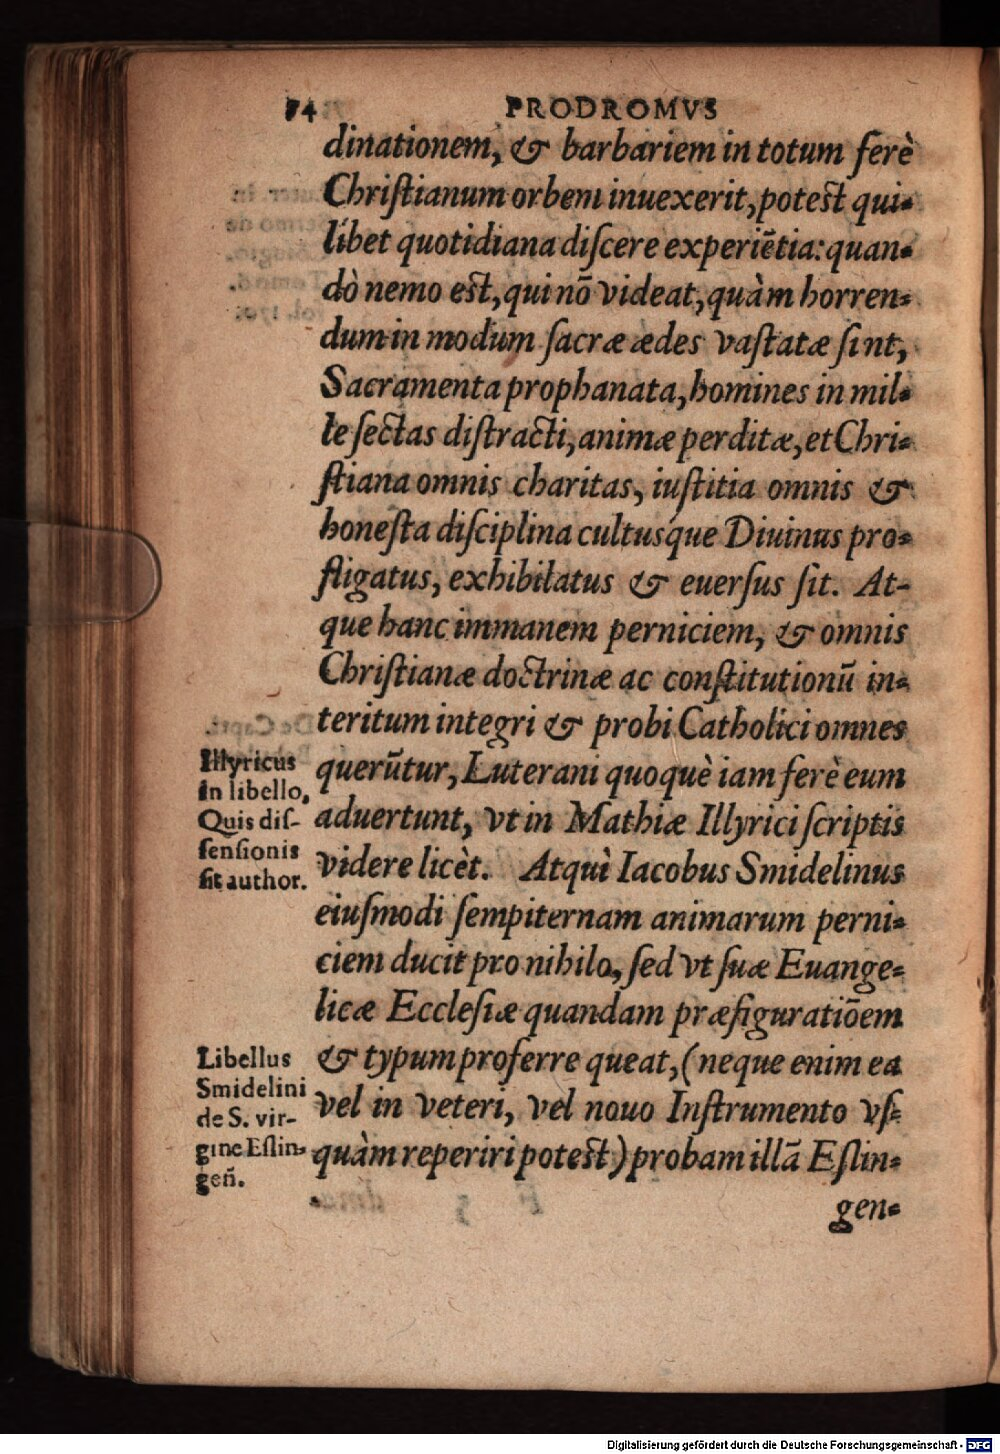 74 PRODROMVS
dinationem, & barbariem in totum ferè
Chriſtianum orbem inuexerit, poteſt qui-
libet quotidiana diſcere experiẽtia: quan-
dò nemo eſt, qui nõ videat, quàm horren-
dum in modum ſacræ ædes vaſtatæ ſint,
Sacramenta prophanata, homines in mil-
le ſectas diſtracti, animæ perditæ, et Chri-
ſtiana omnis charitas, iuſtitia omnis &
honeſta diſciplina cultusq́ue Diuinus pro-
fligatus, exhibilatus & euerſus ſit. At-
que hanc immanem perniciem, & omnis
Chriſtianæ doctrinæ ac conſtitutionũ in-
teritum integri & probi Catholici omnes
querũtur, Luterani quoquè iam ferè eum
aduertunt, vt in Mathiæ Illyrici ſcriptis
videre licèt. Atquì Iacobus Smidelinus
eiuſmodi ſempiternam animarum perni-
ciem ducit pro nihilo, ſed vt ſuæ Euange-
licæ Eccleſiæ quandam præfiguratiõem
& typum proferre queat, (neque enim ea
vel in veteri, vel nouo Inſtrumento vſ-
quàm reperiri poteſt) probam illã Eſlin-
gen-
Illyricus
in libello,
Quis diſ-
ſenſionis
ſit author.
Libellus
Smidelini
de S. vir-
gine Eſlin-
geñ.
Digitalisierung gefördert durch die Deutsche Forschungsgemeinschaft - DFG